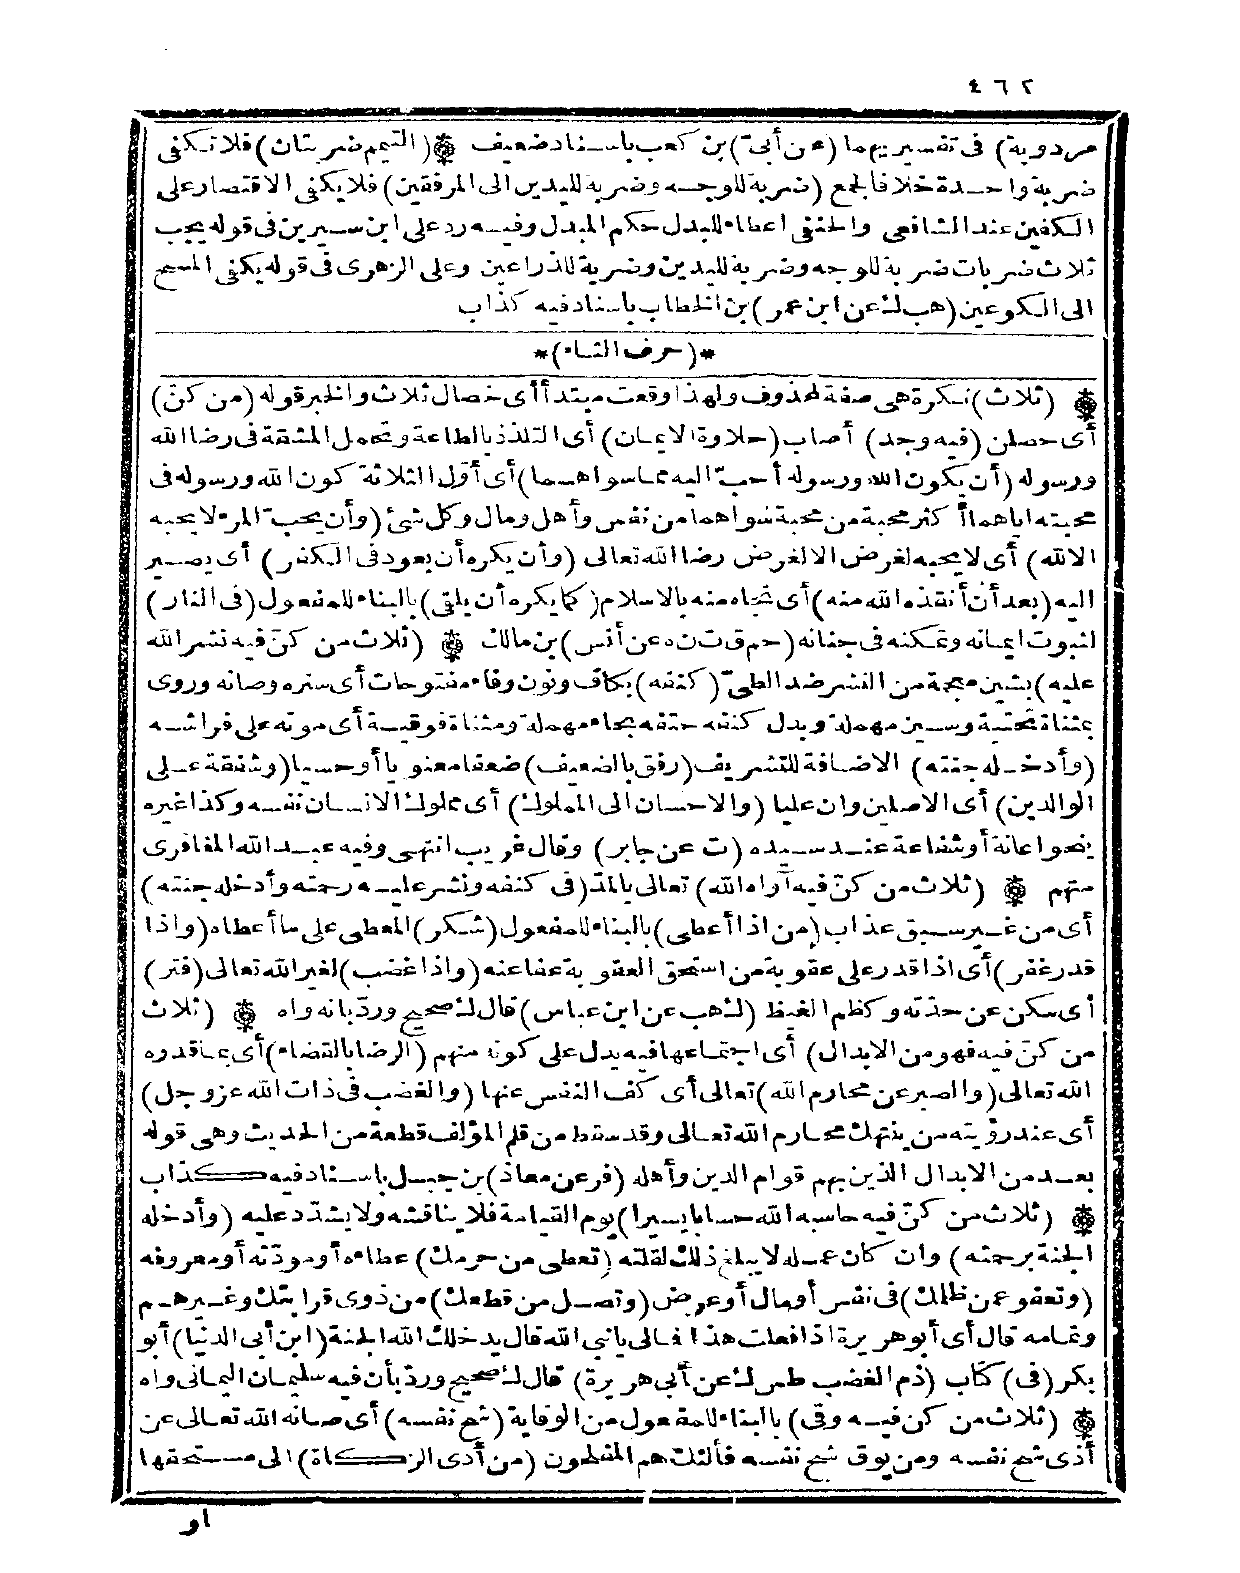 ٤٦٢
مردويه) فى تفسيريهما (عن أبىّ) بن كعب باسناد ضعيف ۞ (التيمم ضربتان) فلا تكفى
ضربة واحدة خلافا لجمع (ضربة للوجه وضربة لليدين الى المرفقين) فلا يكفى الاقتصار على
الكفين عند الشافعى والحنفى اعطاء للبدل حكم المبدل وفيه رد على ابن سيرين فى قوله يجب
ثلاث ضربات ضربة للوجه وضربة لليدين وضربة للذراعين وعلى الزهرى فى قوله يكفى المسح
الى الكوعين (هب ك عن ابن عمر) بن الخطاب باسناد فيه كذاب
*(حرف الثاء)*
۞ (ثلاث) نكرة هى صفة لمحذوف ولهذا وقعت مبتدأ أى خصال ثلاث والخبر قوله (من كنّ)
أى حصلن (فيه وجد) أصاب (حلاوة الايمان) أى التلذذ بالطاعة وتحمل المشقة فى رضا الله
ورسوله (أن يكون الله ورسوله أحبّ اليه مما سواهما) أى أوّل الثلاثة كون الله ورسوله فى
محبته اياهما أكثر محبة من محبة سواهما من نفس وأهل ومال وكل شئ (وأن يحبّ المرء لا يحبه
الا لله) أى لا يحبه لغرض الا لغرض رضا الله تعالى (وأن يكره أن يعود فى الكفر) أى يصير
اليه (بعد أن أنقذه الله منه) أى نجاه منه بالاسلام (كما يكره أن يلقى) بالبناء للمفعول (فى النار)
لثبوت ايمانه وتمكنه فى جنانه (حم ق ت ن ه عن أنس) بن مالك ۞ (ثلاث من كنّ فيه نشر الله
عليه) بشين معجمة من النشر ضد الطىّ (كنفه) بكاف ونون وفاء مفتوحات أى ستره وصانه وروى
بمثناة تحتية وسين مهملة وبدل كنفه حتفه بحاء مهملة ومثناة فوقية أى موته على فراشه
(وأدخله جنته) الاضافة للتشريف (رفق بالضعيف) ضعفا معنويا أو حسيا (وشفقة على
الوالدين) أى الاصلين وان عليا (والاحسان الى المملوك) أى مملوك الانسان نفسه وكذا غيره
بنحو اعانة أو شفاعة عند سيده (ت عن جابر) وقال غريب انتهى وفيه عبد الله المغافرى
متهم ۞ (ثلاث من كنّ فيه آواه الله) تعالى بالمدّ (فى كنفه ونشر عليه رحمته وأدخله جنته)
أى من غير سبق عذاب (من اذا أعطى) بالبناء للمفعول (شكر) المعطى على ما أعطاه (واذا
قدر غفر) أى اذا قدر على عقوبة من استحق العقوبة عفا عنه (واذا غضب) لغير الله تعالى (فتر)
أى سكن عن حدّته وكظم الغيظ (ك هب عن ابن عباس) قال ك صحيح وردّ بانه واه ۞ (ثلاث
من كنّ فيه فهو من الابدال) أى اجتماعها فيه يدل على كونه منهم (الرضا بالقضاء) أى بما قدره
الله تعالى (والصبر عن محارم الله) تعالى أى كف النفس عنها (والغضب فى ذات الله عز وجل)
أى عند رؤيته من ينتهك محارم الله تعالى وقد سقط من قلم المؤلف قطعة من الحديث وهى قوله
بعد من الابدال الذين بهم قوام الدين وأهله (فر عن معاذ) بن جبل باسناد فيه كذاب
۞ (ثلاث من كنّ فيه حاسبه الله حسابا يسيرا) يوم القيامة فلا يناقشه ولا يشدّد عليه (وأدخله
الجنة برحمته) وان كان عمله لا يبلغ ذلك لقلته (تعطى من حرمك) عطاءه أو مودّته أو معروفه
(وتعفو عمن ظلمك) فى نفس أو مال أو عرض (وتصل من قطعك) من ذوى قرابتك وغيرهم
وتمامه قال أى أبو هريرة اذا فعلت هذا فمالى يا نبى الله قال يدخلك الله الجنة (ابن أبى الدنيا) أبو
بكر (فى) كتاب (ذم الغضب طس ك عن أبى هريرة) قال ك صحيح وردّ بأن فيه سليمان اليمانى واه
۞ (ثلاث من كن فيه وقى) بالبناء للمفعول من الوقاية (شح نفسه) أى صانه الله تعالى عن
أذى شح نفسه ومن يوق شح نفسه فأولئك هم المفلحون (من أدى الزكاة) الى مستحقها
او